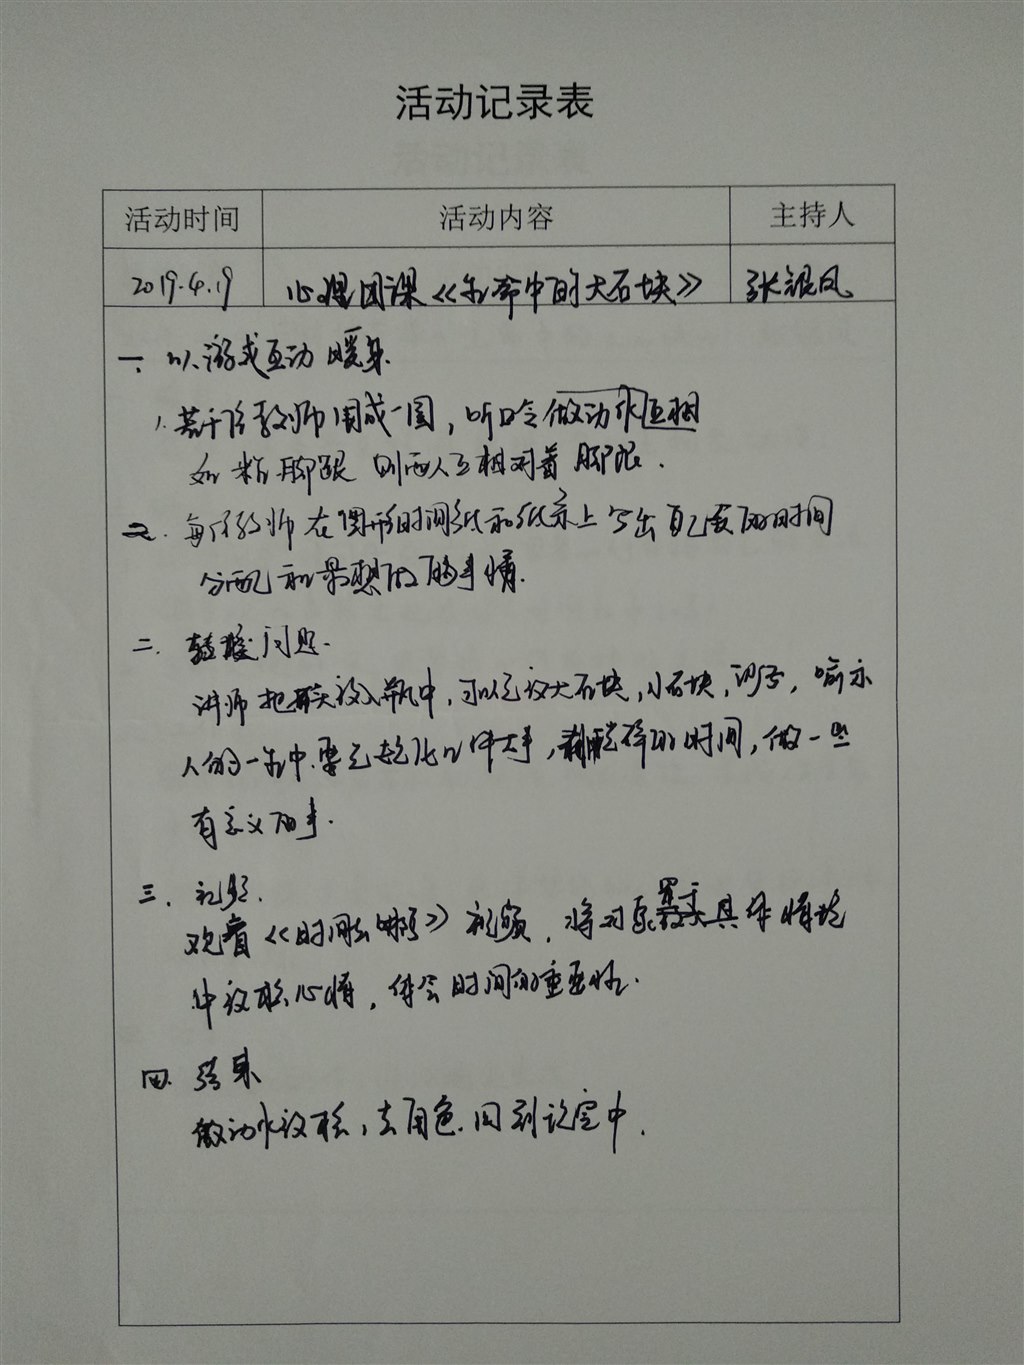 活动记录表
活动时间 活动内容 主持人
2019.4.19 心理团课《生命中的大石块》 张银凤
一. 以游戏互动暖身.
1. 若干位教师围成一圈，听口令做动作互相
如粘脚跟 则两人互相对着脚跟.
2. 每位教师在圆形时间纸和纸条上写出自己的时间
分配和最想做的事情.
二. 问题.
讲师把放入瓶中，可以先放大石块，小石块，沙子，喻示
人的一生中.要先几件大事，的时间，做一些
有意义的事.
三. 视频.
观看《时间去哪了》视频，将对具体情境
中放松心情，体会时间的重要性.
四. 结束
做动作放松，去角色.回到现实中.